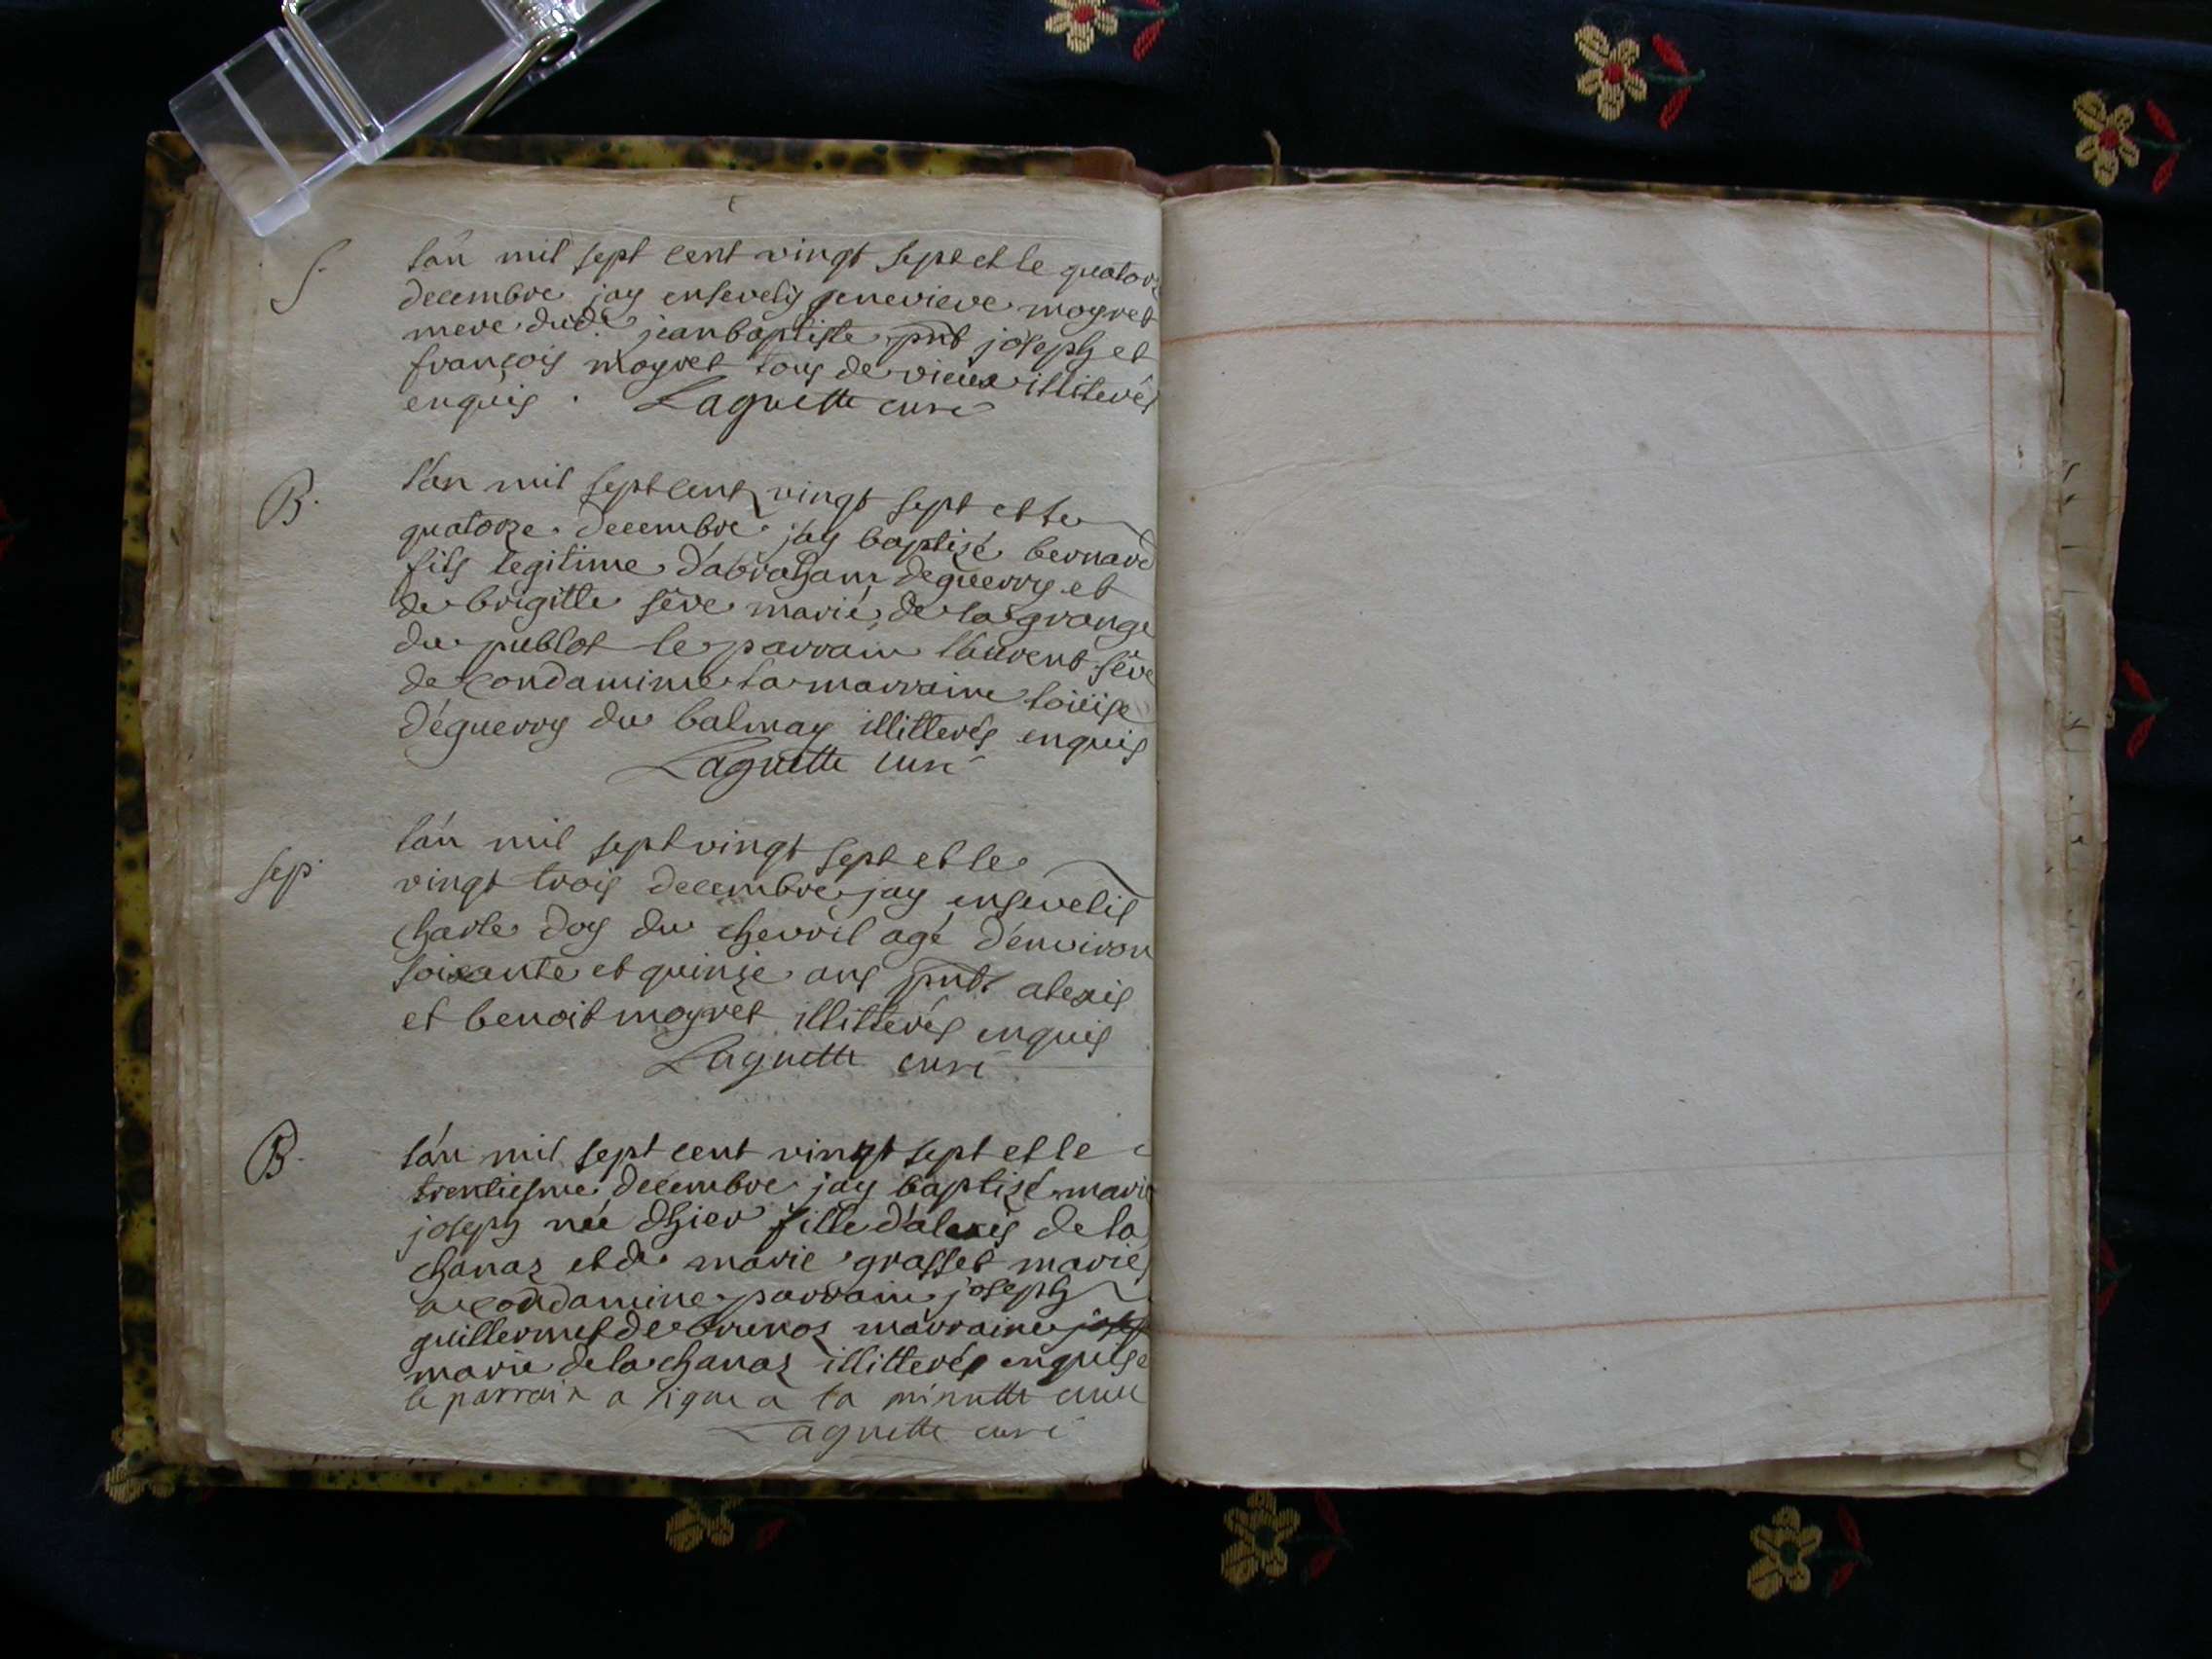 S. l'an mil sept cent vingt sept et le quatorze
decembre jay ensevely genevieve moyret
mere dud. jean baptiste pnt joseph et
françois moyret tous de vieux illiterés
enquis. Laguette curé
B. l'an mil sept cent vingt sept et le
quatorze decembre jay baptizé bernard
fils legitime d'abraham deguerry et
de brigitte sève marié de la grange
du publot le parrain laurent sève
de condamine la marraine loüise
déguerry du balmay illitterés enquis
Laguette curé
sep. l'an mil sept vingt sept et le
vingt trois decembre jay ensevelis
charle doy du chevril agé d'environ
soixante et quinze ans pnt alexis
et benoit moyret illitterés enquis
Laguette curé
B. l'an mil sept cent vingt sept et le
trentiesme decembre jay baptizé marie
joseph née dhier fille d'alexis de la
chanaz et de marie grasset mariés
a condamine parrain joseph
guillermet de brenoz marraine
marie de la chanaz illitterés enquise
le parrain a signé a la minutte
Laguette curé